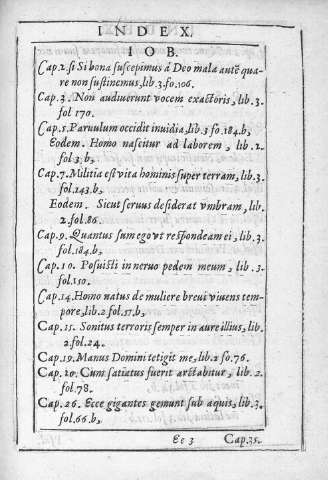 INDEX.
IOB.
Cap.2. si Si bona suscepimus à Deo mala autē qua-
re non sustinemus, lib.3.fo.106.
Cap.3. Non audiuerunt vocem exactoris, lib.3.
fol 170.
Cap.5. Paruulum occidit inuidia, lib.3 fo.184.b,
Eodem. Homo nascitur ad laborem, lib.2.
fol.3.b,
Cap.7. Militia est vita hominis super terram, lib.3.
fol.243.b,
Eodem. Sicut seruus desiderat vmbram, lib.
2.fol.86.
Cap.9. Quantus sum ego vt respōdeam ei, lib.3.
fol.184.b,
Cap.10. Posuisti in neruo pedem meum, lib.3.
fol.150.
Cap.14. Homo natus de muliere breui viuens tem-
pore, lib.2 fol.57.b,
Cap.15. Sonitus terroris semper in aure illius, lib.
2.fol.24.
Cap.19. Manus Domini tetigit me, lib.2 fo.76.
Cap.20. Cum satiatus fuerit arctabitur, lib.2.
fol.78.
Cap.26. Ecce gigantes gemunt sub aquis, lib.3.
fol.66.b,
Ee 3 Cap.35.